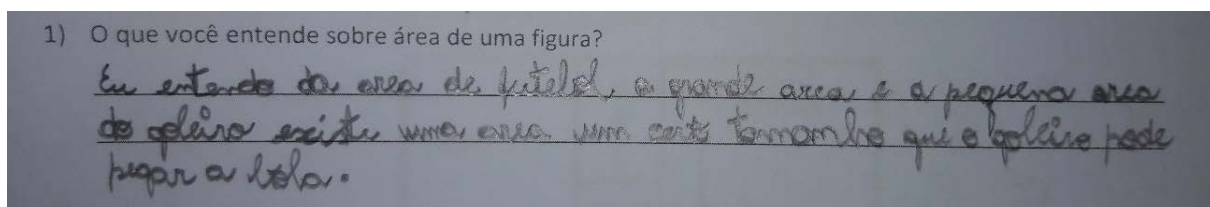 1) O que você entende sobre área de uma figura?
Eu entendo da area de futebol, a grande area e a pequena area
do goleiro existe uma area um certo tamanho que o goleiro pode
pegar a bola.